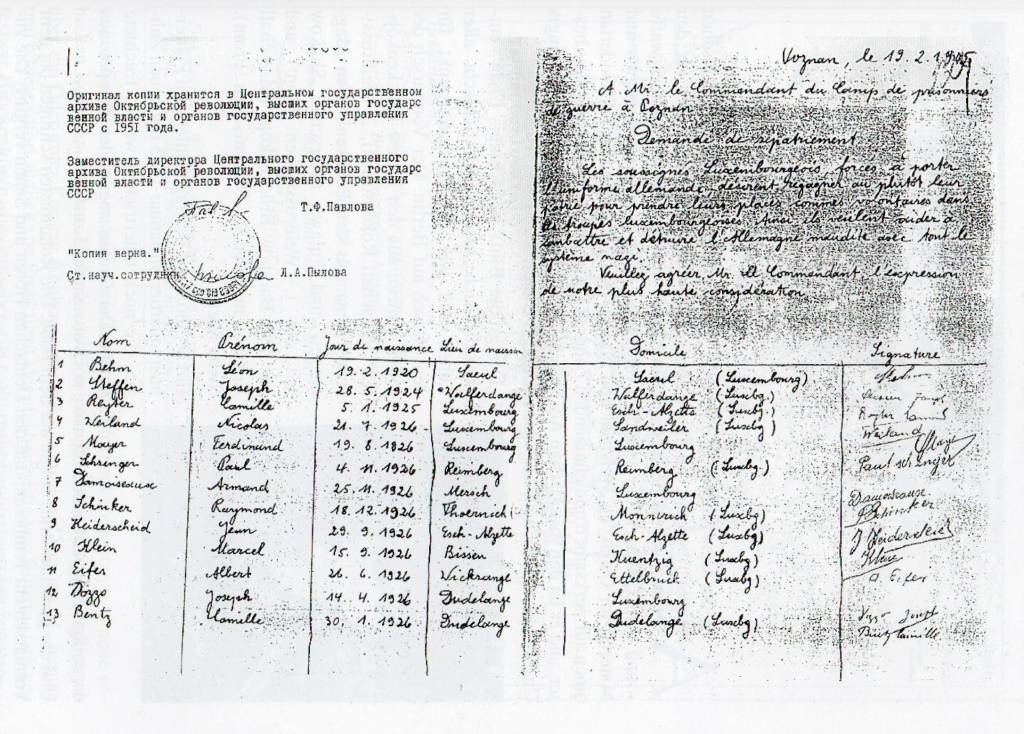 Оригинал копии хранится в Центральном государственном
архиве Октябрьской революции, высших органов государс
венной власти и органов государственного управления
СССР с 1951 года.
Заместитель директора Центрального государственного
архива Октябрьской революции, высших органов государс
венной власти и органов государственного управления
СССР
Т.Ф.Павлова
"Копия верна."
Ст.науч.сотрудник Л.А.Пылова
Poznan, le 19.2.1945
A Mr. le Commandant du Camp de prisonniers
de guerre à Poznan
Demande de rapatriement
Les soussignés Luxembourgeois, forcés à porter
l'uniforme allemande, désirent regagner au plutôt leur
patrie pour prendre leurs places commes volontaires dans
les troupes luxembourgeoises. Ainsi ils veulent aider à
combattre et détruire l'Allemagne maudite avec tout le
système nazi.
Veuillez agréer, Mr. le Commandant, l'expression
de notre plus haute considération.
Nom Prénom Jour de naissance Lieu de naissan Domicile Signature
1 Behm Léon 19.2.1920 Saeul Saeul (Luxembourg)
2 Steffen Joseph 28.5.1924 Walferdange Walferdange (Luxbg.)
3 Reyter Camille 5.1.1925 Luxembourg Esch-Alzette (Luxbg.) Reyter Camille
4 Weiland Nicolas 21.7.1926 Luxembourg Sandweiler (Luxbg) Weiland
5 Mayer Ferdinand 19.8.1926 Luxembourg Luxembourg Mayer
6 Schrenger Paul 4.11.1926 Reimberg Reimberg (Luxbg.) Paul Schrenger
7 Damoiseaux Armand 25.11.1926 Mersch Luxembourg Damoiseaux
8 Schinker Raymond 18.12.1926 Thoernich Monnerich (Luxbg) Schinker
9 Heiderscheid Jean 29.9.1926 Esch-Alzette Esch-Alzette (Luxbg) J Heiderscheid
10 Klein Marcel 15.9.1926 Bissen Kuentzig (Luxbg) Klein
11 Eifes Albert 26.6.1926 Wickrange Ettelbruck (Luxbg) A. Eifes
12 Dozzo Joseph 14.4.1926 Dudelange Luxembourg
13 Bentz Camille 30.1.1926 Dudelange Dudelange (Luxbg) Bentz Camille